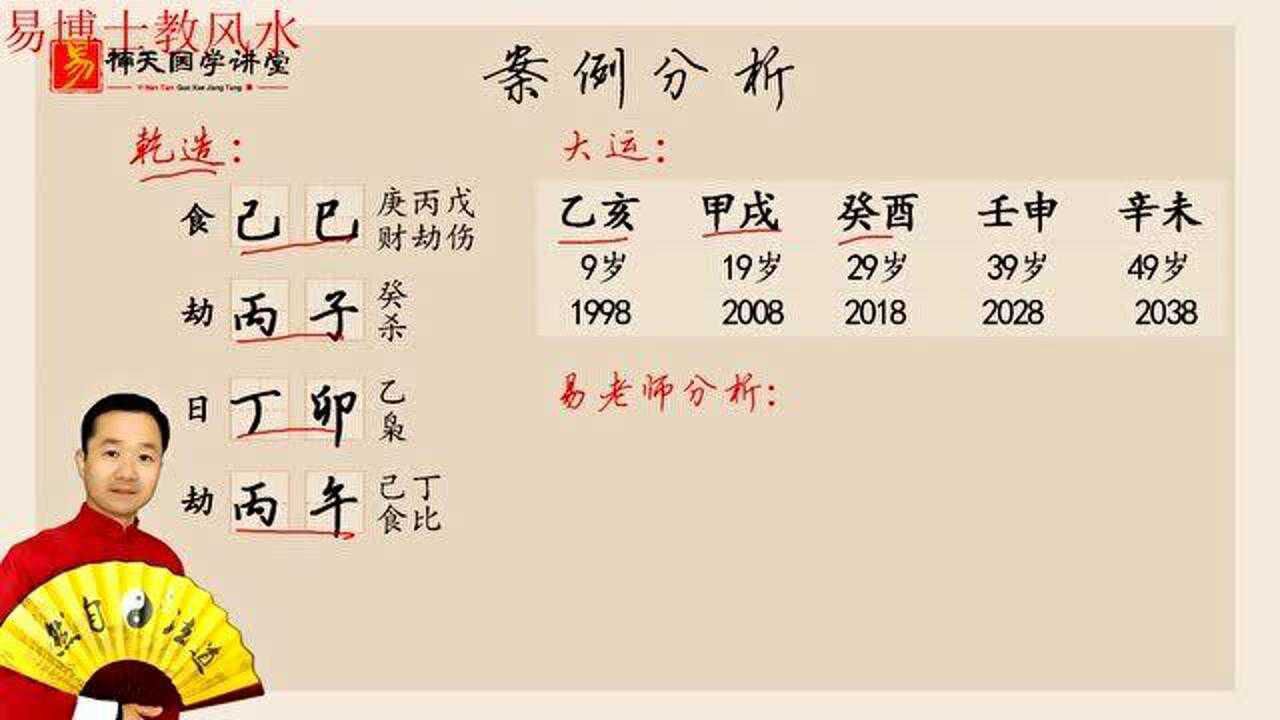 易博士教风水
易
Yi Nan Tian Guo Xue Jiang Tang
天国学讲堂
案例分析
乾造：
食 己 巳 庚丙戊
财劫伤
劫 丙 子 癸
杀
日 丁 卯 乙
枭
劫 丙 午 己丁
食比
大运：
乙亥 甲戌 癸酉 壬申 辛未
9岁 19岁 29岁 39岁 49岁
1998 2008 2018 2028 2038
易老师分析：
然自 法道